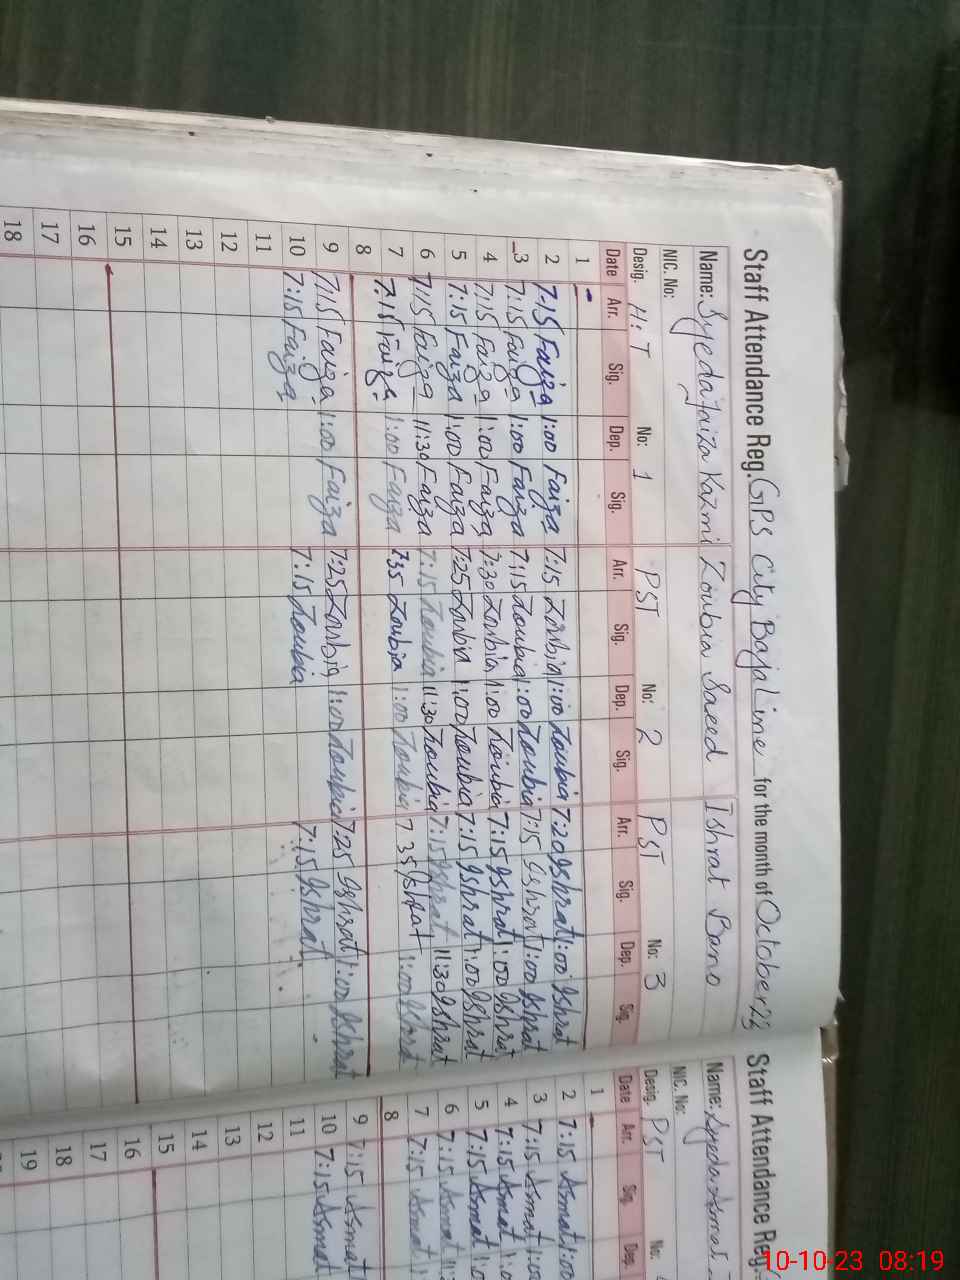 Staff Attendance Reg. GPS City Bajaline for the month of October 23
Name: Syeda Faiza Kazmi Zoubia Saeed Ishrat Bano
NIC. No:
Desig. H:T No: 1 PST No: 2 PST No: 3
Date Arr. Sig. Dep. Sig. Arr. Sig. Dep. Sig. Arr. Sig. Dep. Sig.
1
2 7-15 Faiza 1:00 Faiza 7:15 Zoubia 1:00 Zoubia 7:20 Ishrat 1:00 Ishrat
3 7:15 Faiza 1:00 Faiza 7:15 Zoubia 1:00 Zoubia 7:15 Ishrat 1:00 Ishrat
4 7:15 Faiza 1:00 Faiza 7:30 Zoubia 1:00 Zoubia 7:15 Ishrat 1:00 Ishrat
5 7:15 Faiza 1:00 Faiza 7:25 Zoubia 1:00 Zoubia 7:15 Ishrat 1:00 Ishrat
6 7:15 Faiza 11:30 Faiza 7:15 Zoubia 11:30 Zoubia 7:15 Ishrat 11:30 Ishrat
7 7:15 Faiza 1:00 Faiza 7:35 Zoubia 1:00 Zoubia 7 35 Ishrat 1:00 Ishrat
8
9 7:15 Faiza 1:00 Faiza 7:25 Zoubia 1:00 Zoubia 7:25 Ishrat 1:00 Ishrat
10 7:15 Faiza 7:15 Zoubia 7:15 Ishrat
11
12
13
14
15
16
17
18
Staff Attendance Reg.
Name: Syeda Asmat
NIC. No:
Desig. PST No:
Date Arr. Sig. Dep.
1
2 7:15 Asmat 1:00
3 7:15 Asmat 1:00
4 7:15 Asmat 1:0
5 7:15 Asmat 1:0
6 7:15 Asmat 11
7 7:15 Asmat 1
8
9 7:15 Asmat
10 7:15 Asmat
11
12
13
14
15
16
17
18
19
10-10-23 08:19